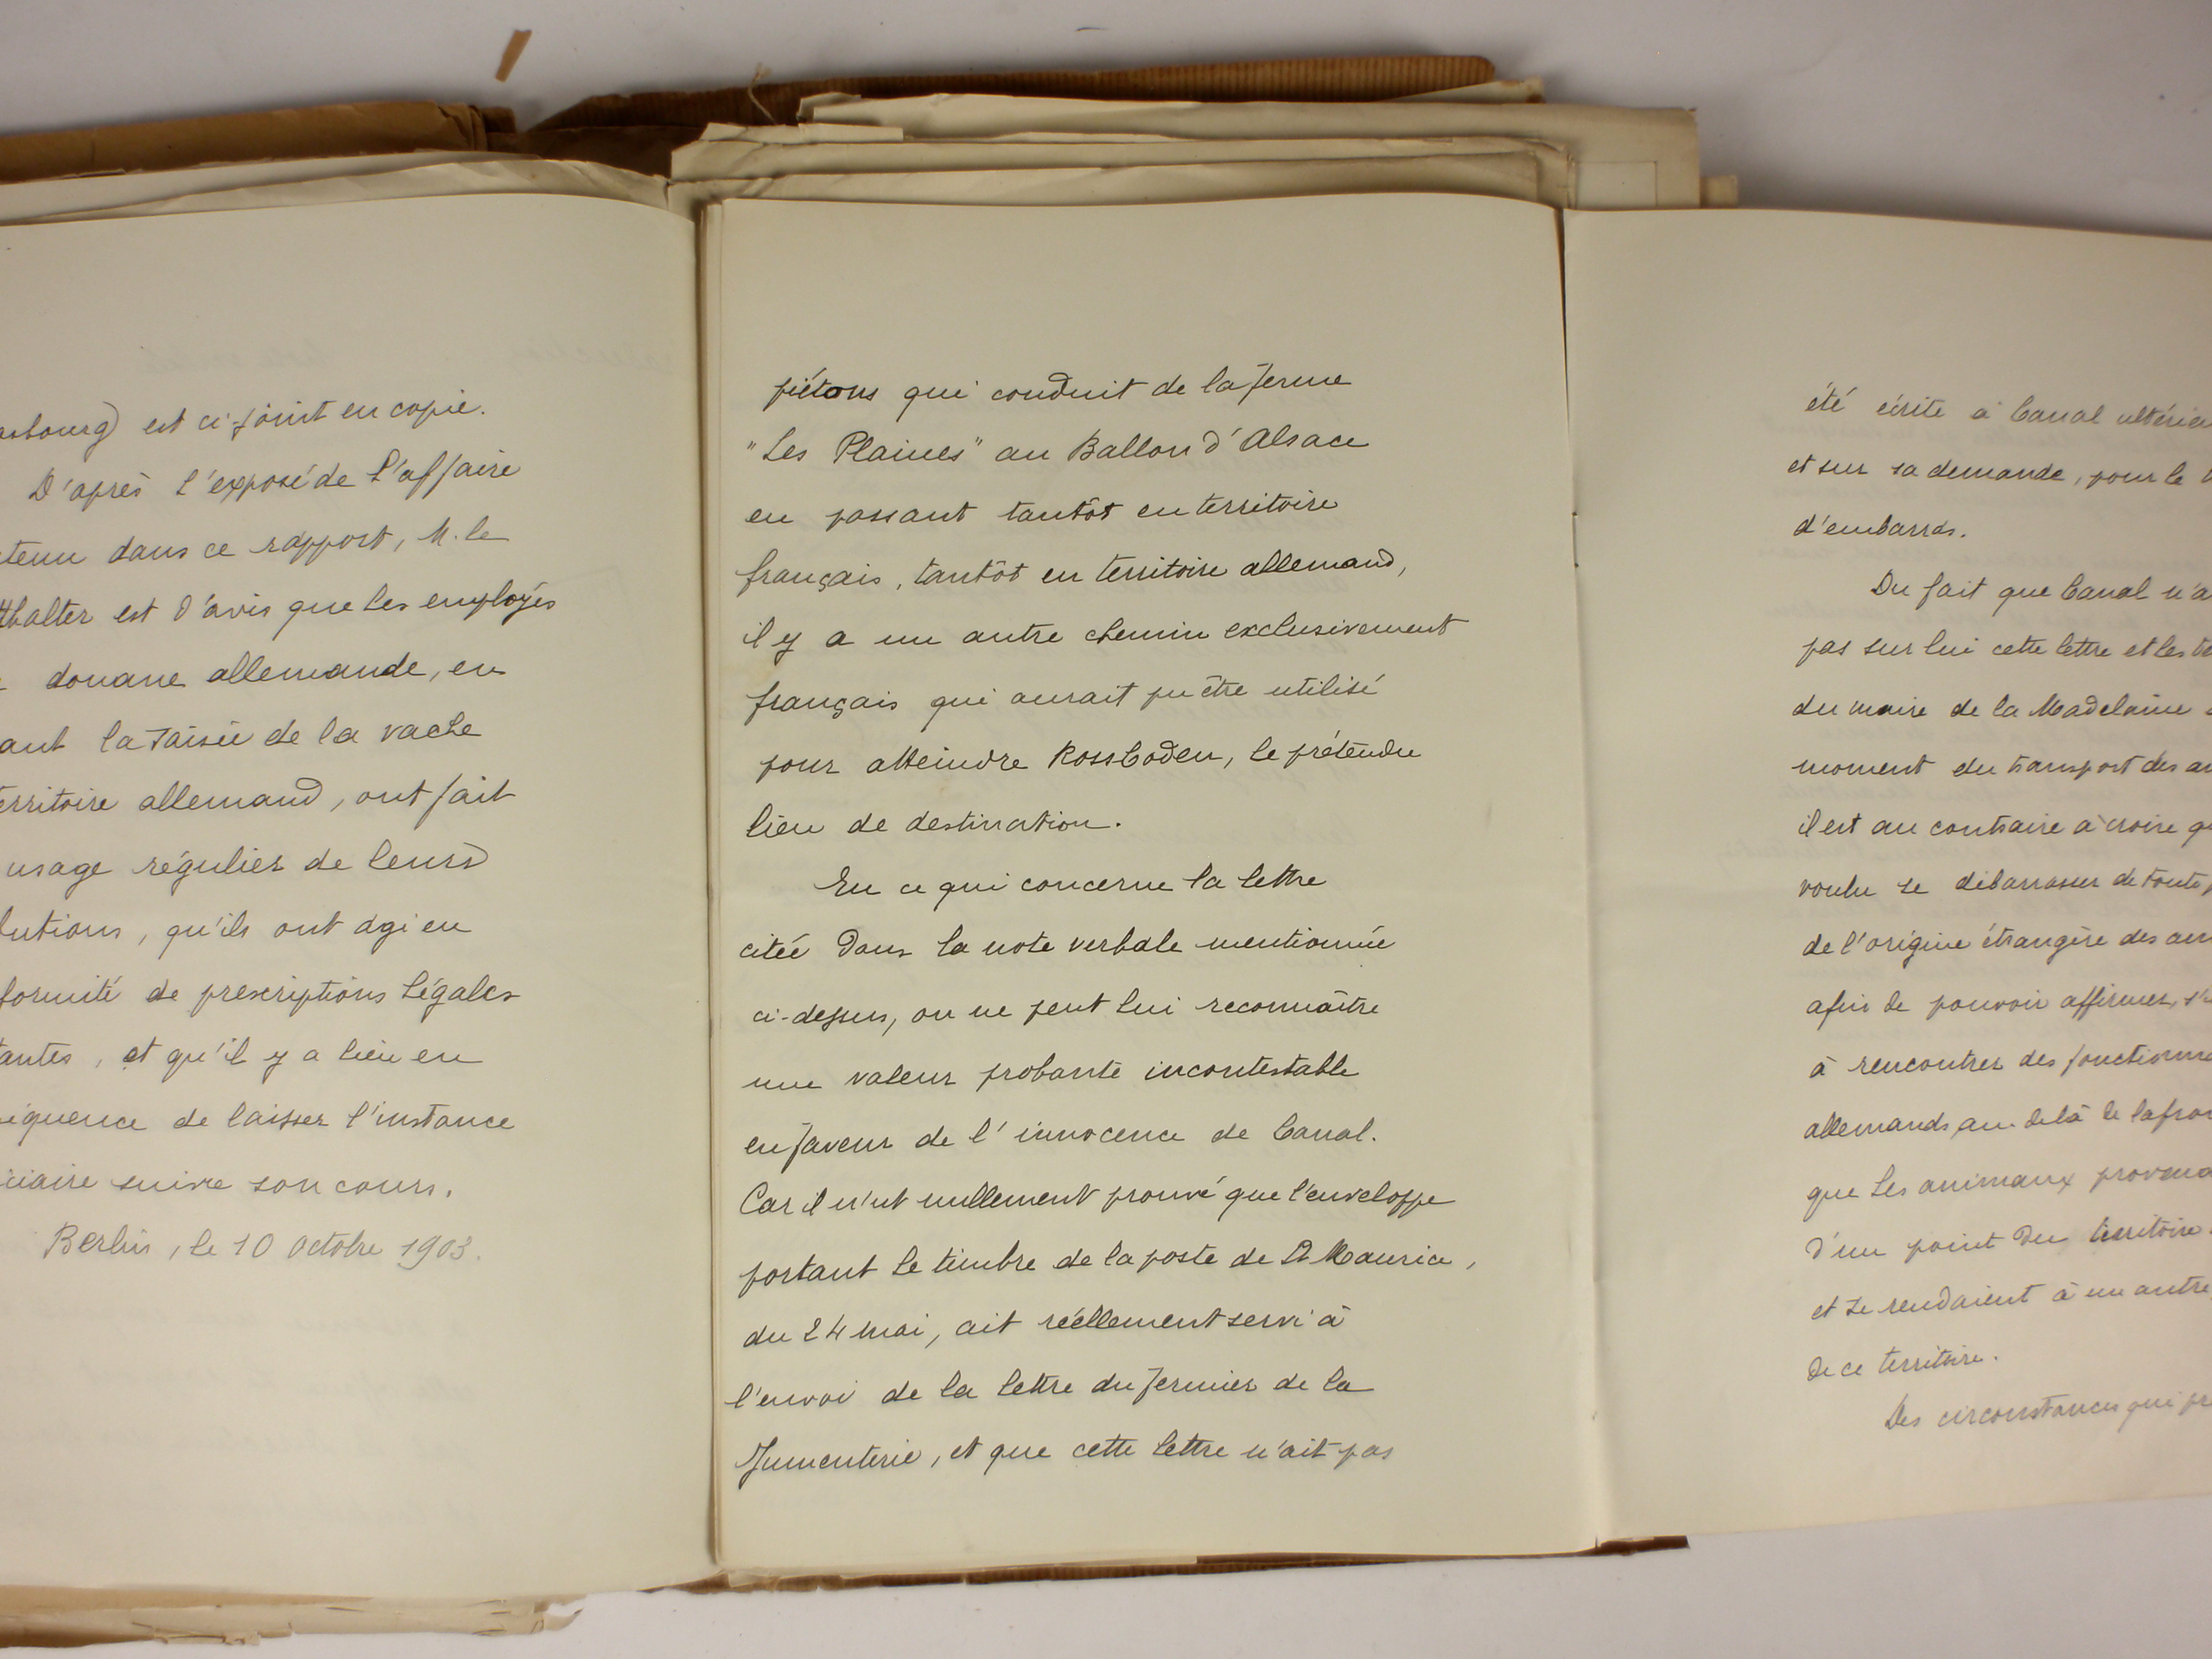 est ci-joint en copie.
D'après l'exposé de l'affaire
dans ce rapport, M. le
est d'avis que les employés
douane allemande, en
la saisie de la vache
territoire allemand, ont fait
usage régulier de leurs
qu'ils ont agi en
de prescriptions légales
et qu'il y a lieu en
de laisser l'instance
suivre son cours.
Berlin, le 10 octobre 1903.
piétons qui conduit de la ferme
"Les Plaines" au Ballon d'Alsace
en passant tantôt en territoire
français, tantôt en territoire allemand,
il y a un autre chemin exclusivement
français qui aurait pu être utilisé
pour atteindre Rossboden, le prétendu
lieu de destination.
En ce qui concerne la lettre
citée dans la note verbale mentionnée
ci-dessus, on ne peut lui reconnaître
une valeur probante incontestable
en faveur de l'innocence de Canal.
Car il n'est nullement prouvé que l'enveloppe
portant le timbre de la poste de St Maurice,
du 24 mai, ait réellement servi à
l'envoi de la lettre du fermier de la
Jumenterie, et que cette lettre n'ait pas
été écrite à Canal
et sur sa demande, pour le
d'embarras.
Du fait que Canal
pas sur lui cette lettre et les
du maire de la Madeleine
moment du transport des
il est au contraire à croire
voulu se débarrasser de toute
de l'origine étrangère des
afin de pouvoir affirmer,
à rencontrer des
allemands au delà de la
que les animaux
d'un point du territoire
et se rendaient à un autre
de ce territoire.
Des circonstances qui